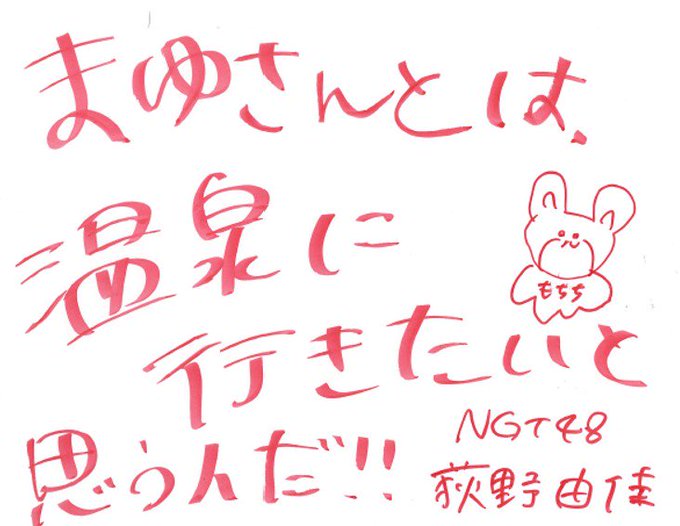 まゆさんとは、
温泉に
行きたいと
思うんだ!!
もちち
NGT48
荻野由佳